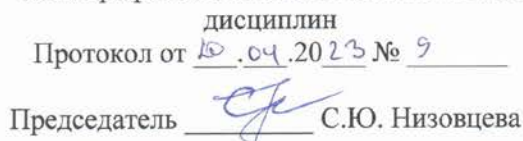 дисциплин
Протокол от 10.04.2023 № 9
Председатель С.Ю. Низовцева